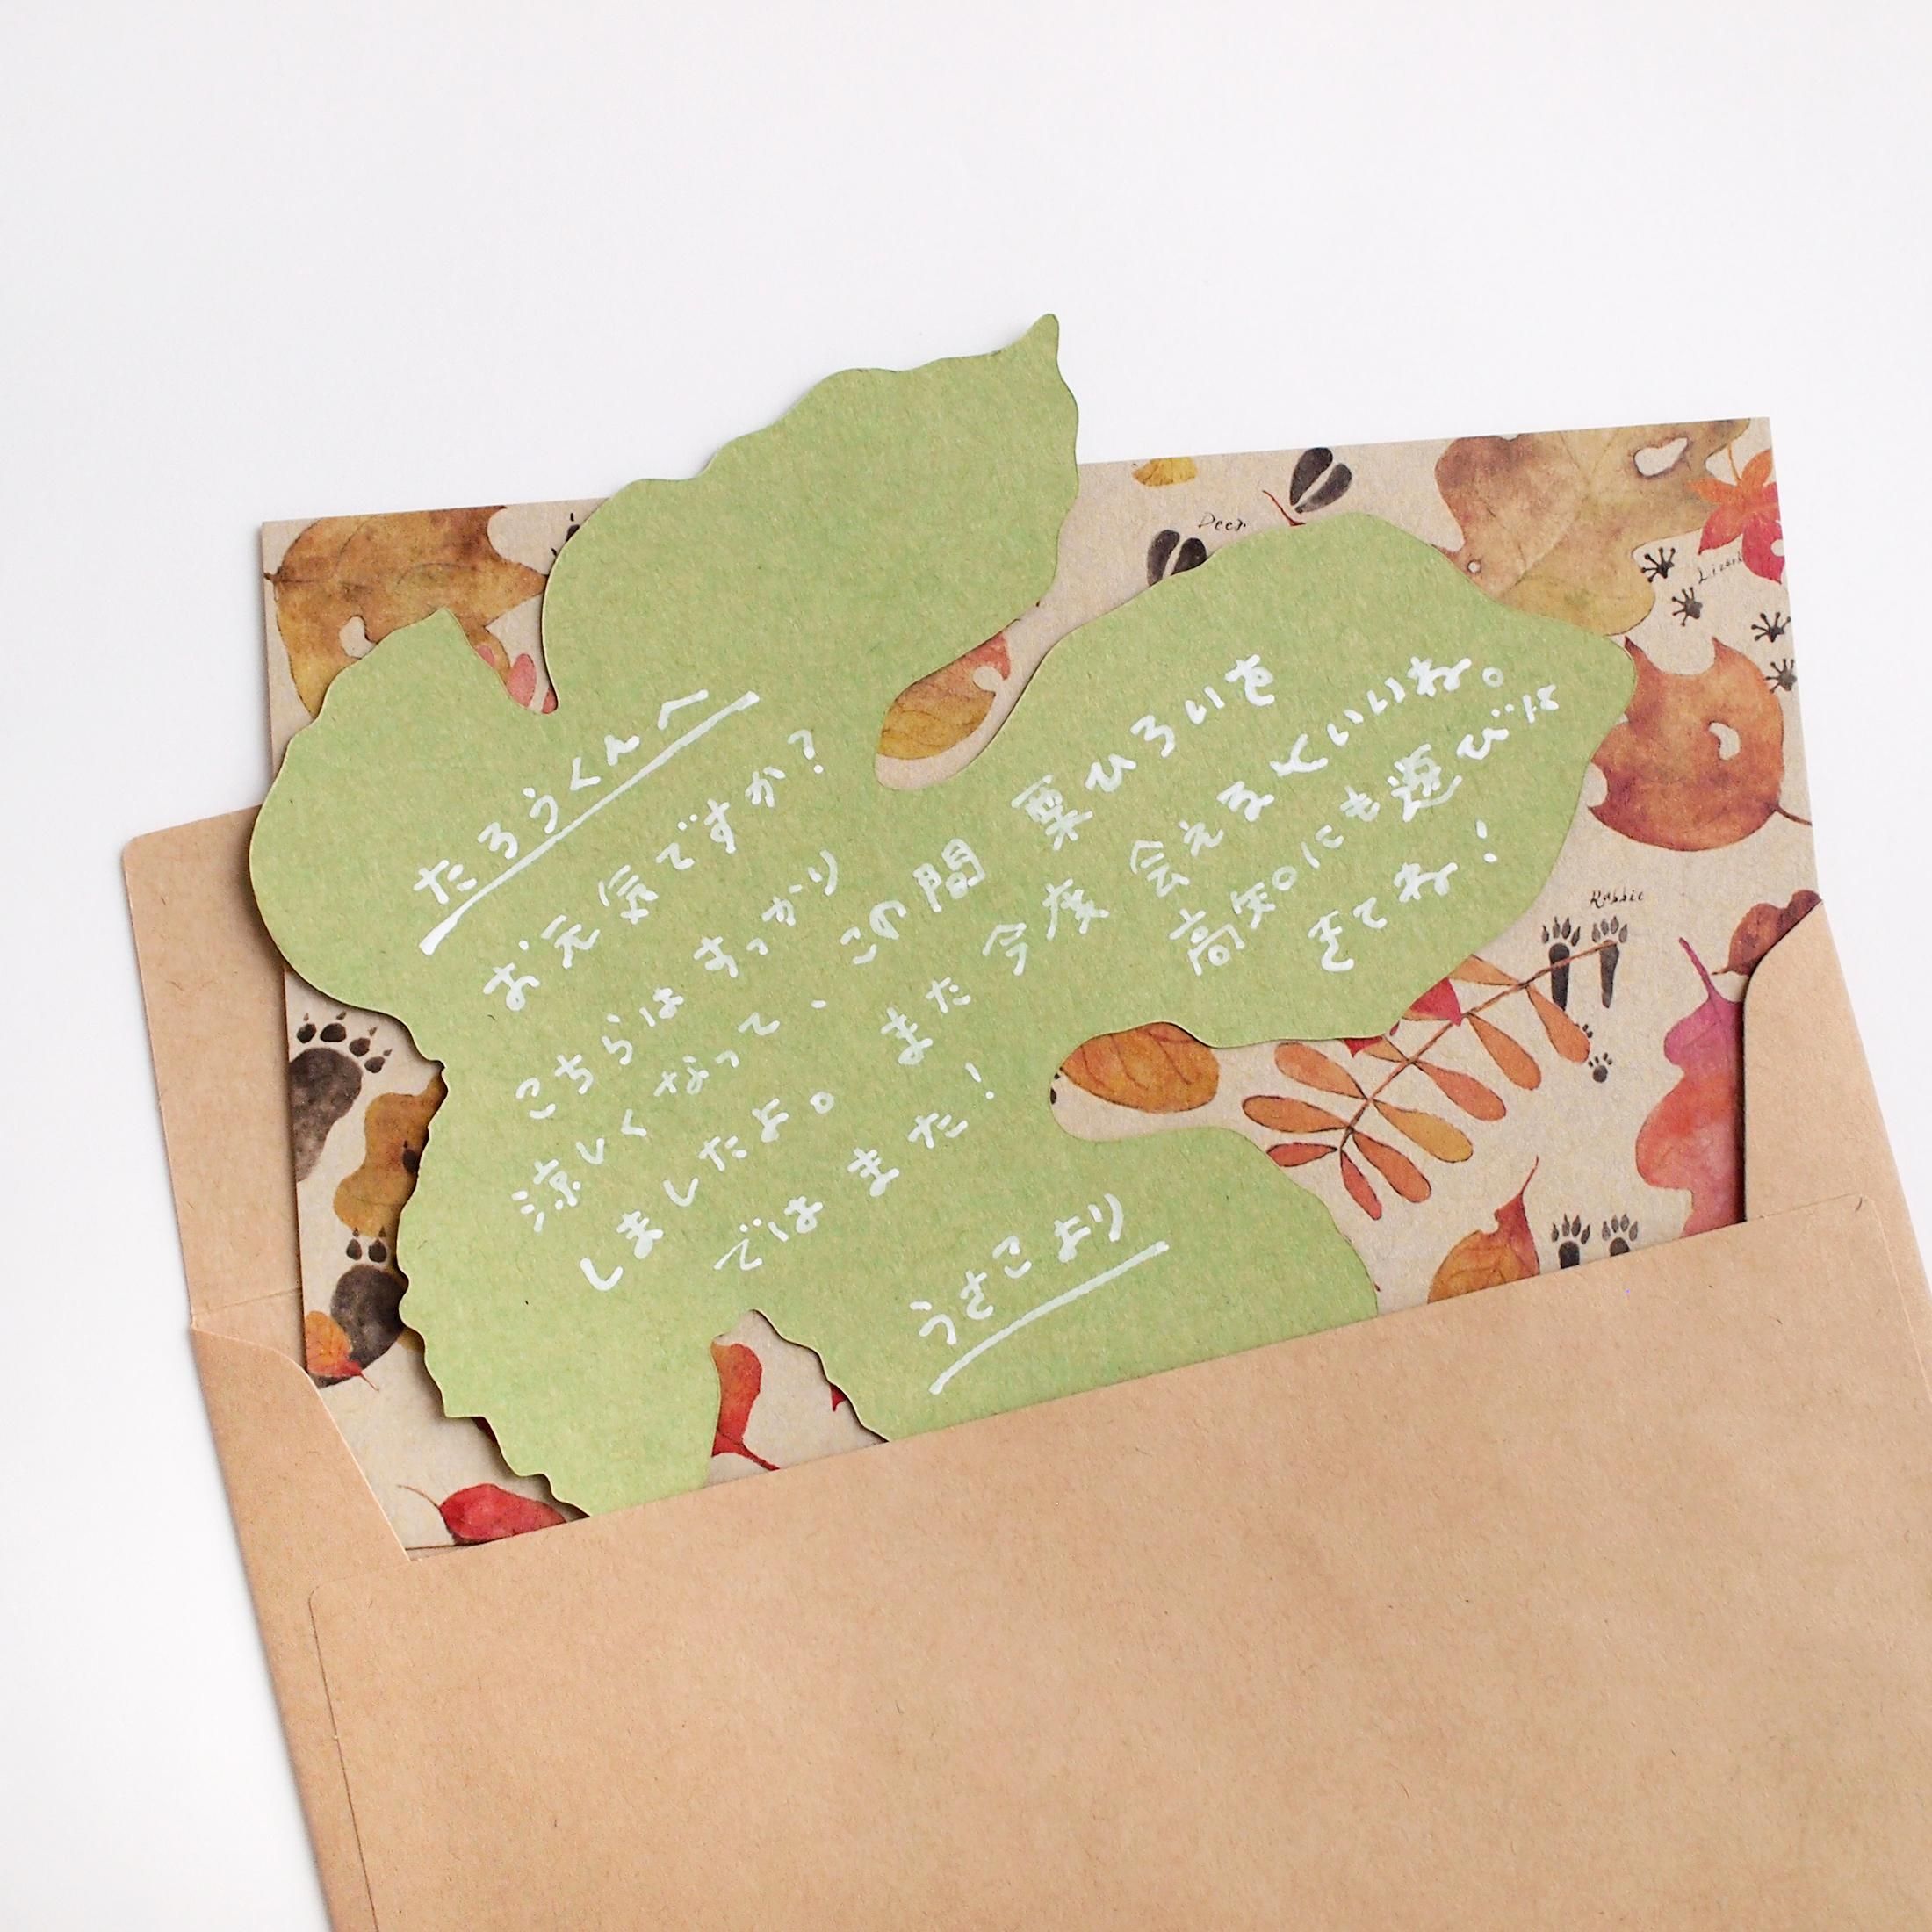 たろうくんへ
お元気ですか?
こちらは すっかり
涼しくなって、この間 栗ひろいを
しましたよ。また今度 会えるといいね。
高知にも遊びに
きてね!
ではまた!
うさこより
Deer
Lizard
Rabbit